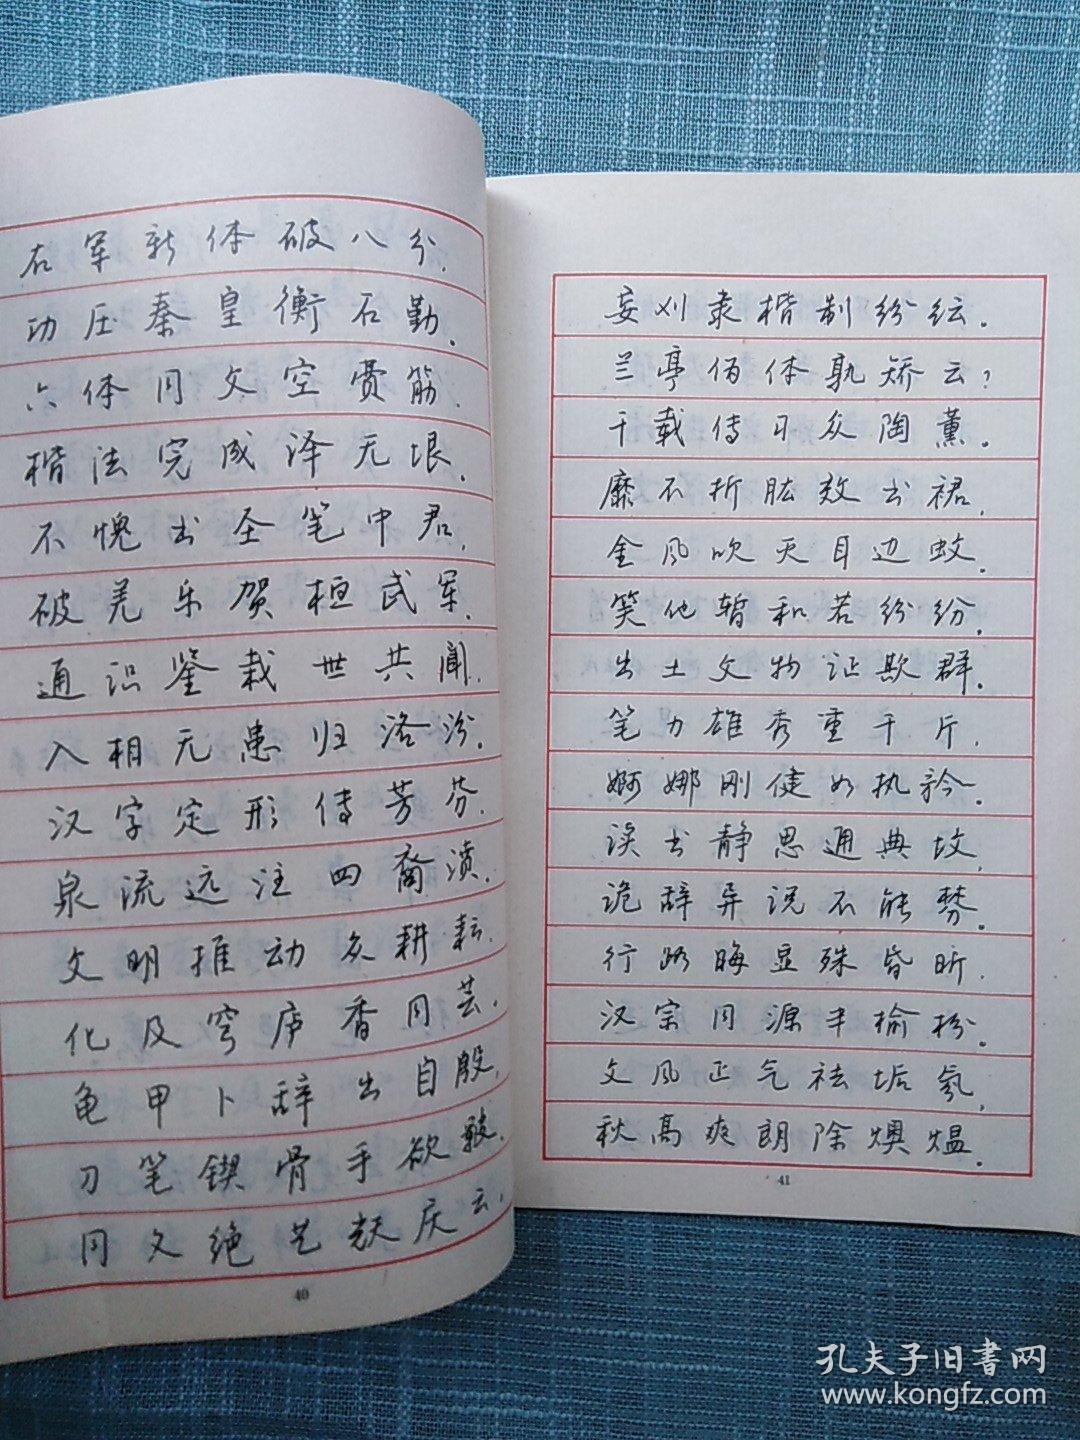 右军新体破八分.
功压秦皇衡石勤.
六体同文空费筋.
楷法完成泽无垠.
不愧书圣笔中君.
破羌乐贺桓武军.
通识鉴裁世共闻.
入相无患归洛汾.
汉字定形传芳芬.
泉流远注四裔濆.
文明推动众耕耘.
化及穹庐香同芸.
龟甲卜辞出自殷.
刀笔锲骨手欲皲.
同文绝艺赵庆云.
40
妄刈隶楷制纷纭.
兰亭伪体孰矫云?
千载传习众陶薰.
靡不折肱效书裙.
金风吹灭耳边蚊.
笑他暂和若纷纷.
出土文物证欺群.
笔力雄秀重千斤.
婀娜刚健如执矜.
读书静思通典坟.
诡辞异说不能棼.
行路晦显殊昏昕.
汉宗同源半榆枌.
文风正气祛垢氛.
秋高爽朗除燠煴.
41
孔夫子旧书网
www.kongfz.com